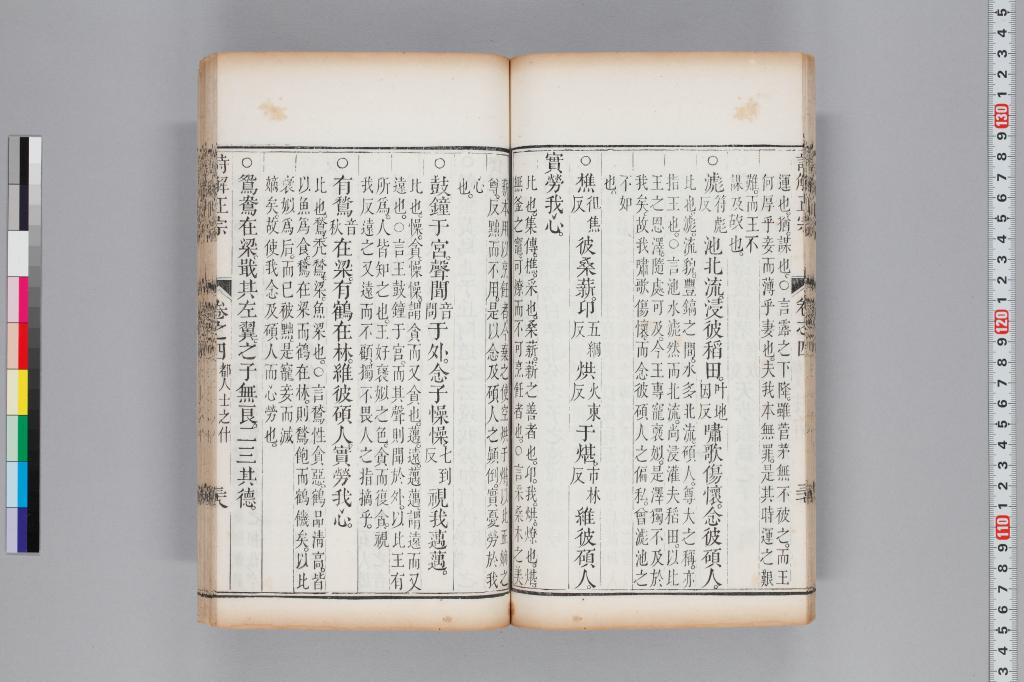 詩解正宗 卷之四
運也。猶。謀也。○言露之下隆。雖菅茅無不被之。而王
何厚乎妾而薄乎妻也。夫我本無罪。是其時運之艱
難。而王不
謀及砍也。
○滮符彪反池北流。浸彼稻田叶地因反。嘯歌傷懷。念彼碩人。
比也。滮流貌。豐鎬之間。水多北流。碩人。尊大之稱。亦
指王也。○言池水滮然而北流。尚浸灌夫稻田。以比
王之恩澤。隨處可及。今王專寵褒姒。是澤獨不及於
我矣。故我嘯歌傷懷。而念彼碩人之偏私。曾滮池之
不如
也。
○樵徂焦反彼桑薪。卬五綱反烘火東反于煁市林反。維彼碩人。
實勞我心。
比也。集傳。樵。采也。桑薪。薪之善者也。卬。我。烘。燎也。煁。
無釜之竈。可燎而不可烹飪者也。言采桑木之美
薪。本用以烹飪者。今棄之使空烘于煁。以比正嫡之
尊。反黜而不用。是以念及碩人之顛倒。實憂勞於我
心
也。
○鼓鐘于宮。聲聞音問于外。念子懆懆七到反。視我邁邁。
比也。懆貪懆。懆謂貪而又貪也。邁。遠。邁邁謂遠而又
遠也。○言王鼓鐘于宮。而其聲則聞於外。以比王有
所爲。人皆知之也。王好褒姒之色。貪而復貪。視
我反遠之又遠而不顧。獨不畏人之指摘乎。
○有鶖音秋在梁。有鶴在林。維彼碩人。實勞我心。
比也。鶖禿鶖。梁魚梁也。○言鶖性貪惡。鶴品清高。皆
以魚爲食。鶖在梁而鶴在林。則鶖飽而鶴饑矣。以比
褒姒爲后。而已被黜。是寵妾而滅
嫡矣。故使我念及碩人而心勞也。
○鴛鴦在梁。戢其左翼。之子無良。二三其德。
詩解正宗 卷之四 都人士之什 三六